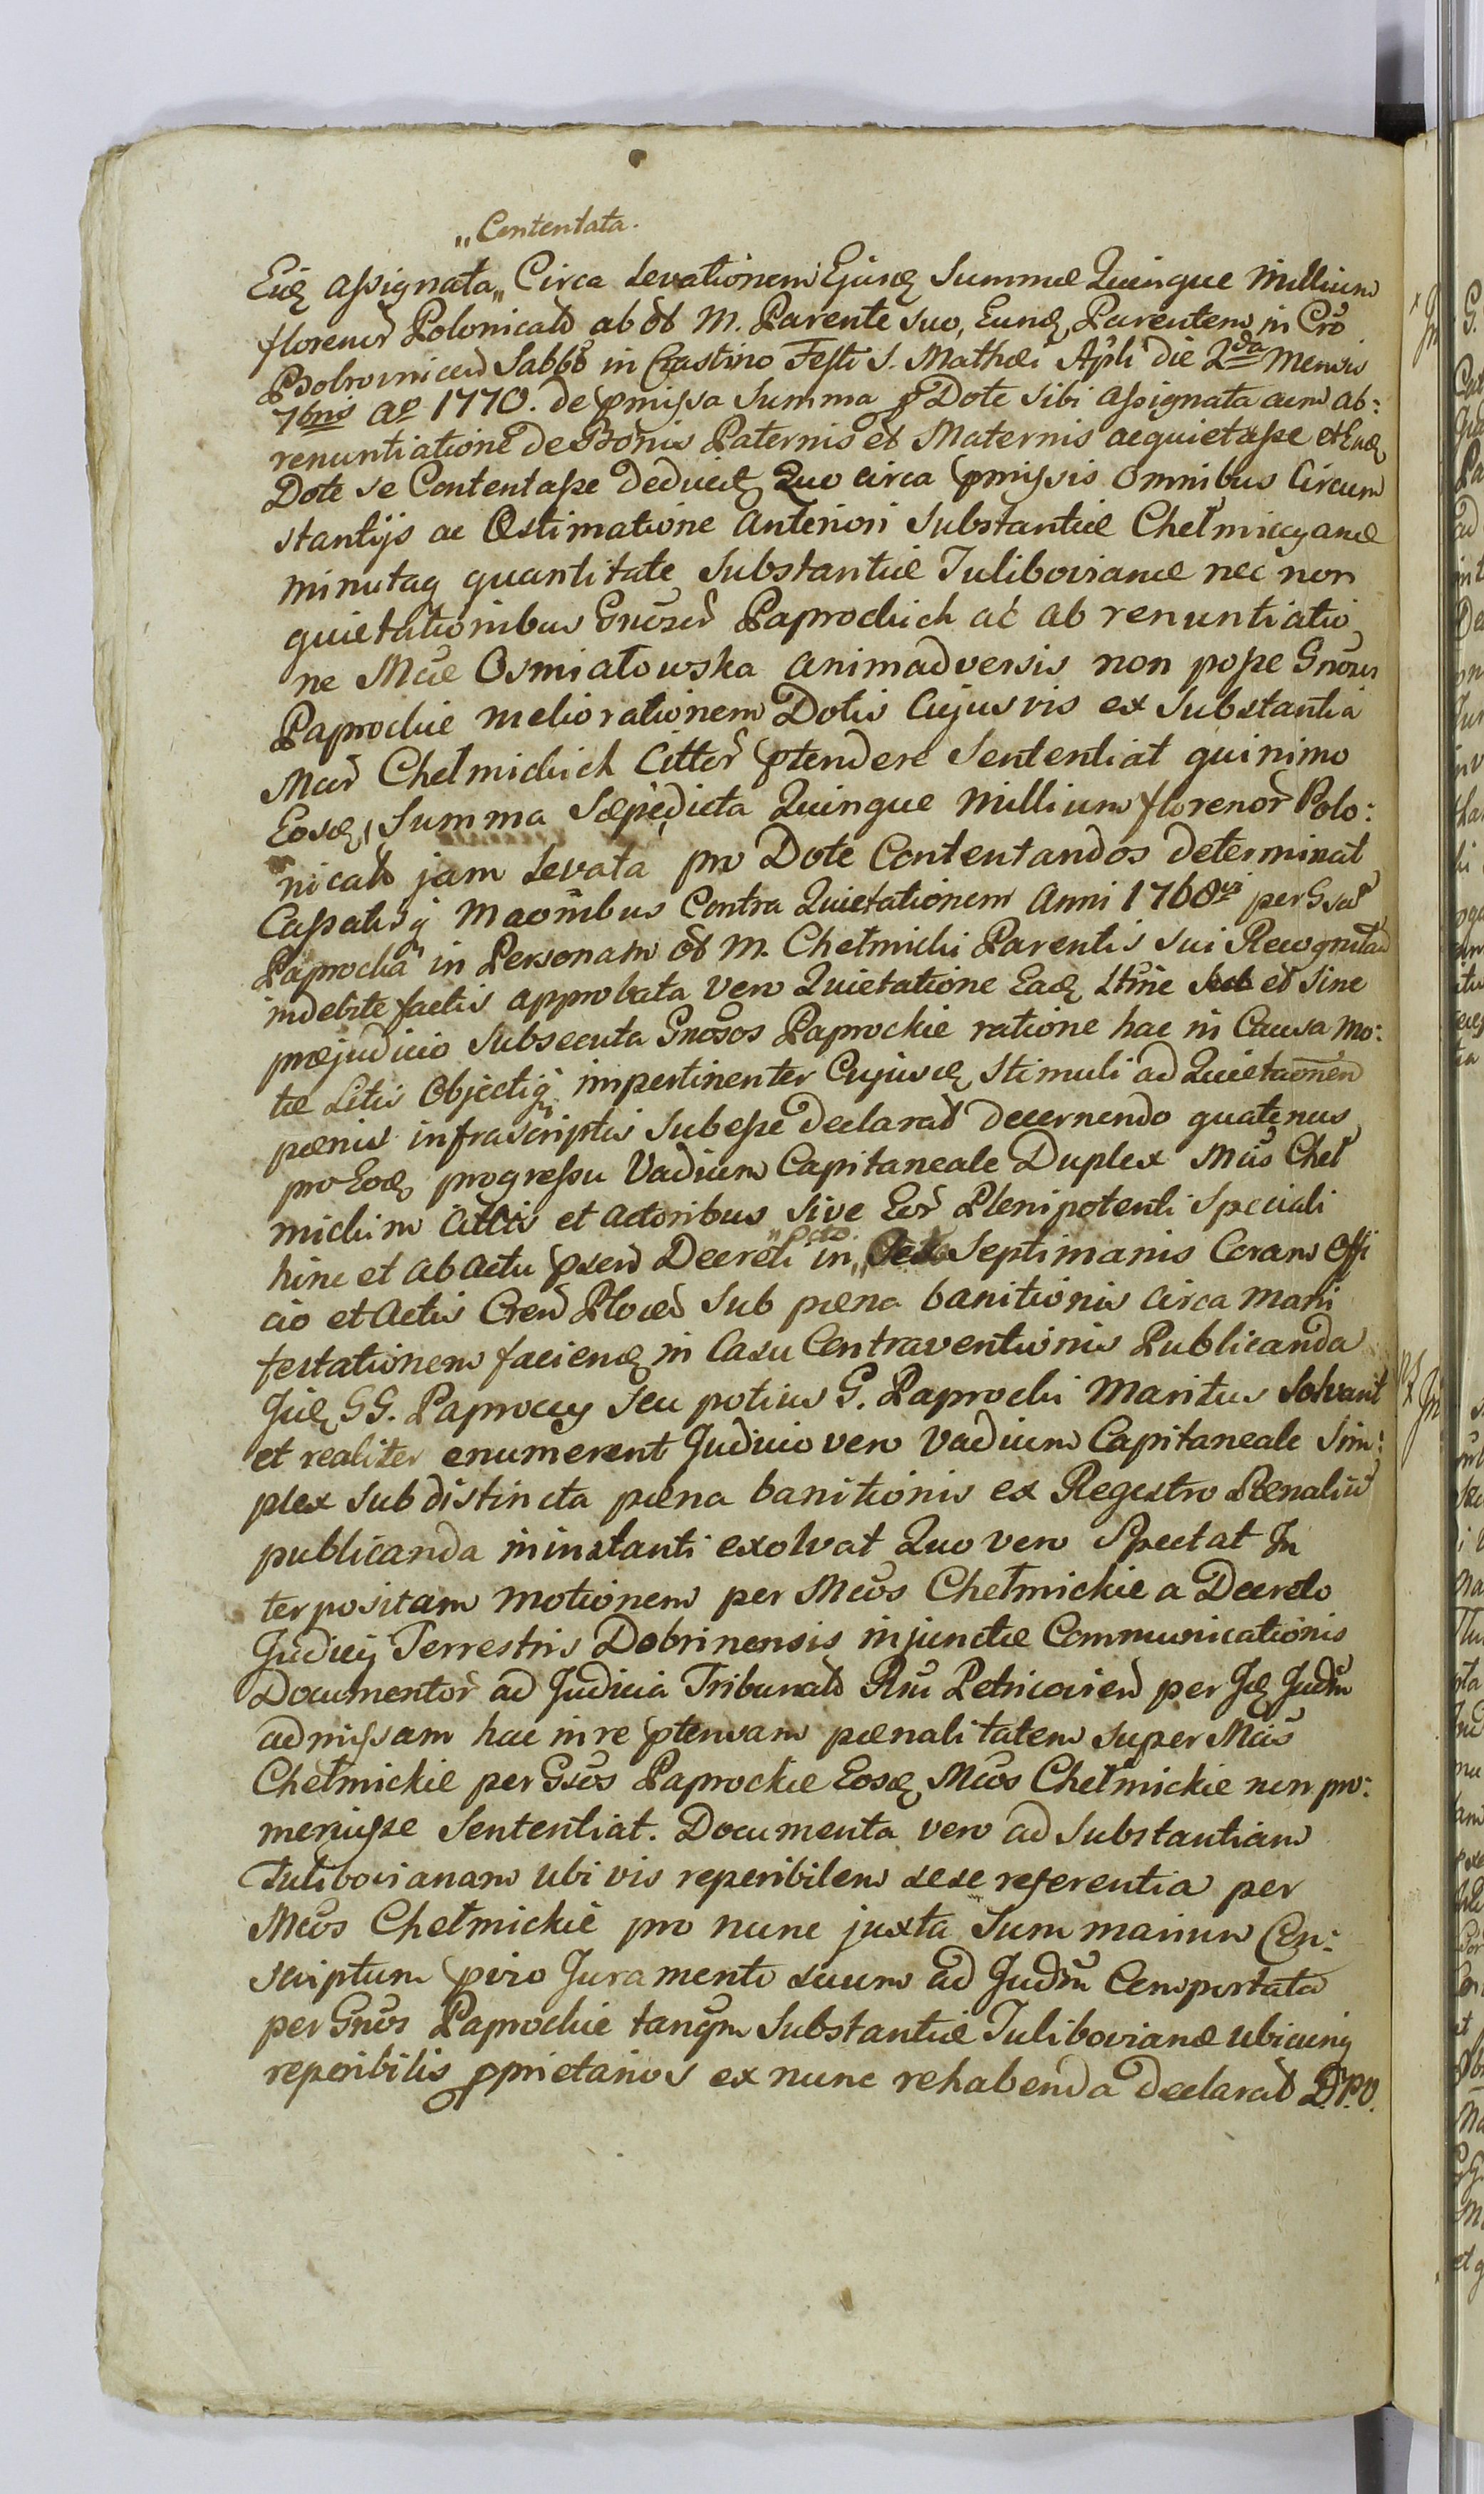 „Contentata.
Eidē assignata„ Circa Levationem Ejusdē Summæ Quinque Millium
florenor̃ Polonicaliũ ab olim M. Parente suo, Eundē Parentem in Cro
Bobrovnicen̄ Sabbõ in Crastino Festi S. Mathæi Apli die 22da Mensis
7bris Ao 1770. de pmissa Summa p Dote sibi assignata cum ab:
renuntiatione de Bonis Paternis et Maternis acquietasse et Eadē
Dote se Contentasse deducit, Quo circa pmissis omnibus Circum
stantijs ac Æstimatione Anteriori Substantiæ Chełmicyanæ
minutaq quantitate Substantiæ Tulibovianæ nec non
quietationibus Gnosor̃ Paprockich ac ab renuntiatio
ne Mcæ Osmiałowska animadversis non posse Gnosos
Paprockie meliorationem Dotis Cujusvis ex Substantia
Mcor̃ Chełmickich Cittor̃ ptendere Sententiat quinimo
Eosdē, Summa Sæpedicta Quinque Millium florenor̃ Polo:
nicaliũ jam Levata pro Dote Contentandos determinat
Cassatisq Maõnibus Contra Quietationem Anni 1768vi per Gsam
Paprocka in Personam olim M. Chełmicki Parentis sui Recognitam
indebite factis approbata vero Quietatione Eadē Ltinè et sine
præjudicio Subsecuta Gnosos Paprockie ratione hac in Causa Mo:
tæ Litis Objectiq impertinenter Cujusdē Stimuli ad Quietaõnem
pænis infrascriptis subesse declarat decernendo quatenus
pro Eodē progressu Vadium Capitaneale Duplex Mcis Cheł
mickim Cittis et Actoribus sive Eor̃ Plenipotenti Speciali
„octo.
hinc et ab actu psen̄ Decreti in„ Septimanis Coram Offi
cio et Actis Cren̄ Plocen̄ sub pæna banitionis circa mani
festationem faciendē in Casu Contraventionis Publicanda
Iidē GG. Paproccy seu potius G. Paprocki Maritus Solvant
et realiter enumerent Judicio vero Vadium Capitaneale Sim:
plex sub distincta pæna banitionis ex Regestro Pænaliũ
publicanda in instanti exolvat Quo vero Spectat In
terpositam Motionem per Mcos Chełmickie a Decreto
Judicij Terrestris Dobrinensis injunctæ Communicationis
Documentor̃ ad Judicia Tribunalũ Rni Petricovien̄ per Idē Judm
admissam hac in re ptensam pænalitatem super Mcis
Chełmickie per Gsos Paprockie Eosdē Mcos Chełmickie non pro:
meruisse Sententiat. Documenta vero ad Substantiam
Tulibovianam ubi vis reperibilem sese referentia per
Mcos Chełmickie pro nunc juxta Summarium Con:
scriptum pvio Juramento suum ad Judm Comportata
per Gnos Paprockie tanqm Substantiæ Tulibovianæ ubicunq
reperibilis pprietarios ex nunc rehabenda declarat D.P.V.